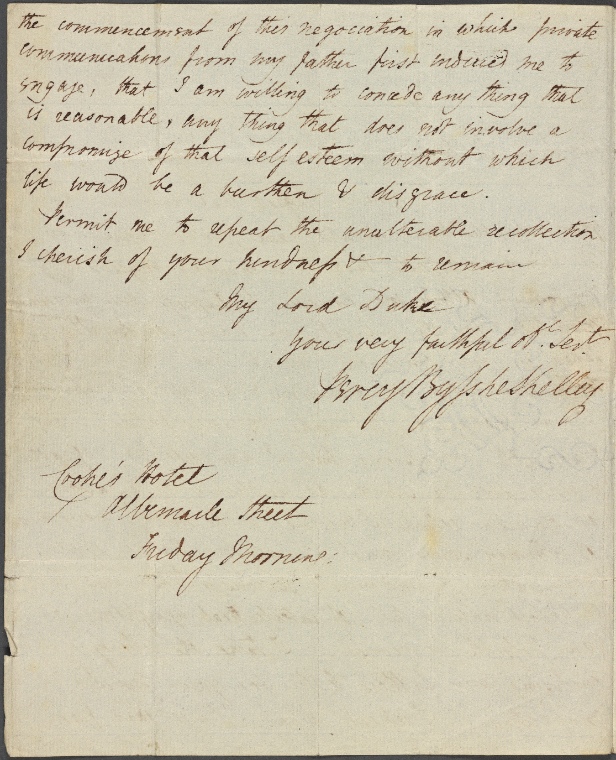 the commencement of this negociation in which private
communications from my father first induced me to
engage, that I am willing to concede any thing that
is reasonable, any thing that does not involve a
compromize of that self esteem without which
life would be a burthen & disgrace.
Permit me to repeat the unalterable recollection
I cherish of your kindness & to remain
My Lord Duke
Your very faithful Ob.t Serv.t
Percy Bysshe Shelley
Cooke's Hotel
Albemarle Street
Friday Morning.